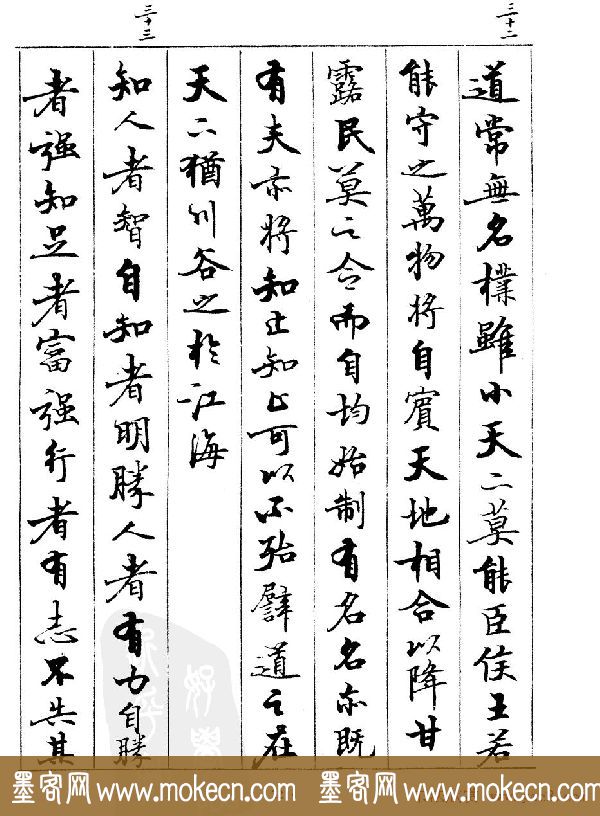 三十二
道常無名樸雖小天二莫能臣侯王若
能守之萬物將自賓天地相合以降甘
露民莫之令而自均始制有名名亦既
有夫亦將知止知止可以不殆譬道之在
天二猶川谷之於江海
三十三
知人者智自知者明勝人者有力自勝
者强知足者富强行者有志不失其
墨客网 www.mokecn.com 墨客网 www.mokecn.com